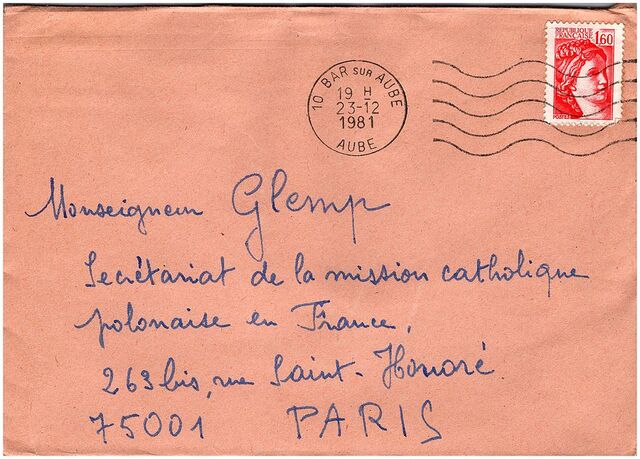 REPUBLIQUE
FRANÇAISE 1,60
POSTES
10 BAR sur AUBE
19 H
23-12
1981
AUBE
Monseigneur Glemp
Secrétariat de la mission catholique
polonaise en France,
263 bis, rue Saint-Honoré
75001 PARIS